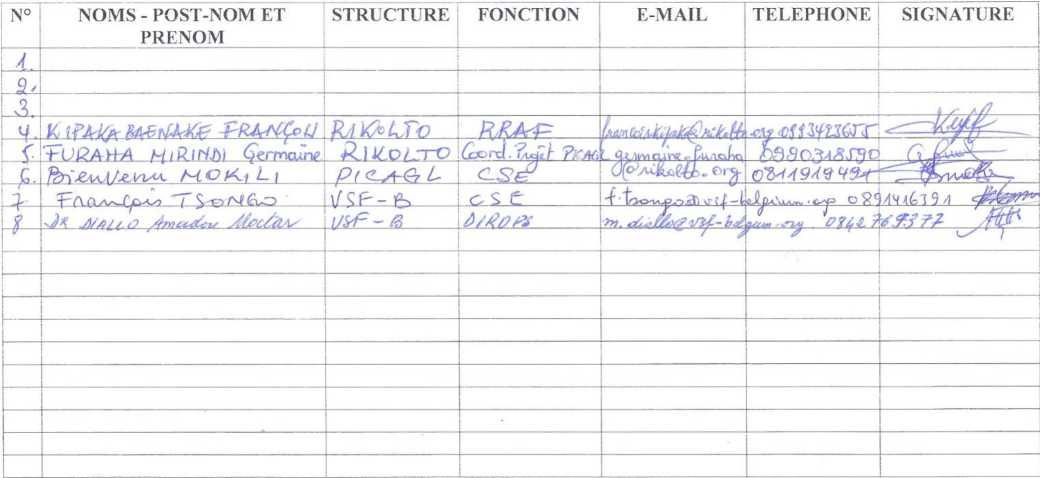 N° NOMS - POST-NOM ET PRENOM STRUCTURE FONCTION E-MAIL TELEPHONE SIGNATURE
1.
2.
3.
4. KIPAKA BAENAKE FRANÇOIS RIKOLTO RRAF francoiskipaka@rikolto.org 0993423655
5. FURAHA MIRINDI Germaine RIKOLTO Coord. Projet PICAGL germaine.furaha 0990318590
@rikolto.org
6. Bienvenu MOKILI PICAGL CSE 0811919491
7 François TSONGO VSF-B CSE f.tsongo@vsf-belgium.org 0891416391
8 DR DIALLO Amadou Moctar VSF-B DIROPS m.diallo@vsf-belgium.org 0842769377